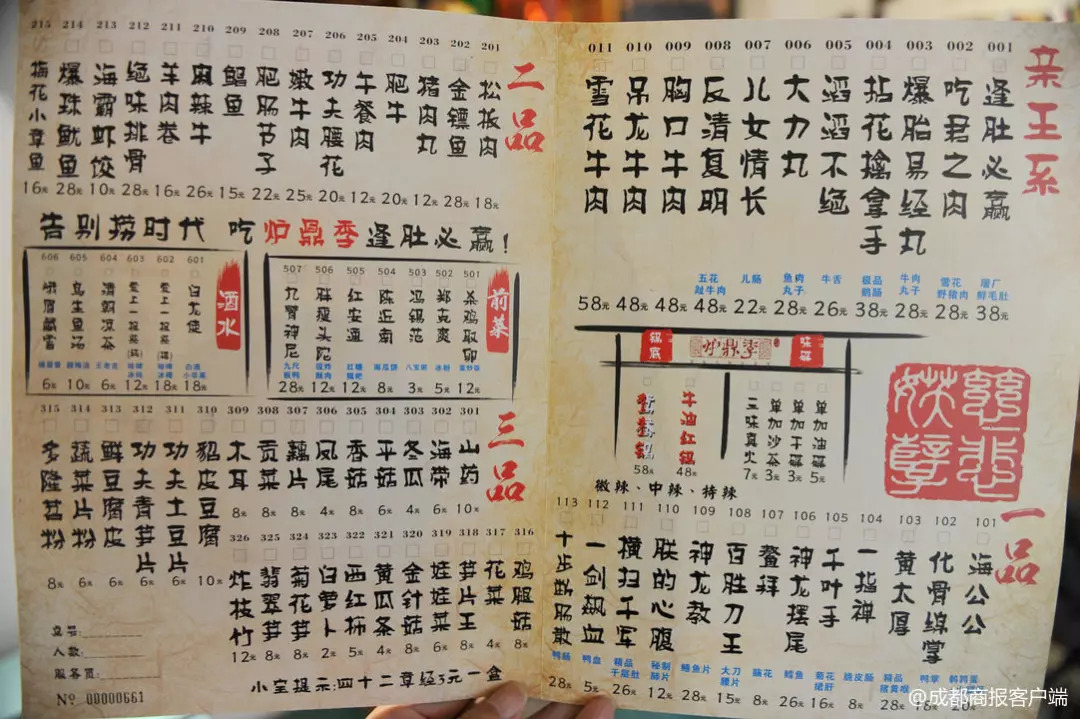 亲王系
001 逢肚必赢 屠厂鲜毛肚 38元
002 吃君之肉 雪花野猪肉 28元
003 爆胎易经丸 牛肉丸子 28元
004 拈花擒拿手 极品鹅肠 38元
005 滔滔不绝 牛舌 26元
006 大力丸 鱼肉丸子 28元
007 儿女情长 儿肠 22元
008 反清复明 五花趾牛肉 48元
009 胸口牛肉 48元
010 吊龙牛肉 48元
011 雪花牛肉 58元
锅底 炉鼎季 味碟
鸳鸯锅 58元
牛油红锅 48元
三味真火 7元
单加沙茶 3元
单加干碟 3元
单加油碟 5元
微辣、中辣、特辣
一品
101 海公公 韩阿菜 20元
102 化骨绵掌 鸭掌 18元
103 黄太厚 精品猪黄喉 28元
104 一指禅 脆皮肠 8元
105 千叶手 菊花猪肝 16元
106 神龙摆尾 鳕鱼 26元
107 鳌拜 脑花 8元
108 百胜刀王 大刀腰片 15元
109 神龙教 鳝鱼片 28元
110 朕的心腹 秘制肠片 12元
111 横扫千军 精品千层肚 26元
112 一剑飙血 鸭血 5元
113 十步断肠散 鸭肠 28元
二品
201 松板肉 18元
202 金镖鱼 28元
203 猪肉丸 12元
204 肥牛 20元
205 午餐肉 12元
206 功夫腰花 20元
207 嫩牛肉 25元
208 肥肠节子 22元
209 鲳鱼 15元
210 麻辣牛肉 26元
211 羊肉卷 16元
212 绝味排骨 28元
213 海霸虾饺 10元
214 爆珠鱿鱼 28元
215 梅花小章鱼 16元
告别捞时代 吃炉鼎季逢肚必赢!
前菜
501 杀鸡取卵 蛋炒饭 12元
502 郑克爽 冰粉 5元
503 冯锡范 八宝粥 3元
504 陈近南 南瓜饼 8元
505 红安通 红糖糍粑 12元
506 胖瘦头陀 现炸酥肉 12元
507 九臂神尼 九尺板鸭 28元
酒水
601 白龙使 白酒小苹果 18元
602 爱上一抹茶(绿) 18元
603 爱上一抹茶(绿) 12元
604 清朝凉茶 王老吉 6元
605 乌生鱼汤 酸梅汤 10元
606 峨眉豌雪 唯怡 6元
三品
301 山药 10元
302 海带 6元
303 冬瓜 4元
304 平菇 6元
305 香菇 8元
306 凤尾 4元
307 藕片 8元
308 贡菜 8元
309 木耳 8元
310 貂皮豆腐 10元
311 功夫土豆片 6元
312 功夫青笋片 6元
313 鲜豆腐皮 6元
314 蔬菜片粉 6元
315 多隆苕粉 8元
316 鸡腿菇 8元
317 花菜 4元
318 笋片王 8元
319 娃娃菜 6元
320 金针菇 8元
321 黄瓜条 4元
322 西红柿 5元
323 白萝卜 2元
324 菊花笋 8元
325 翡翠笋 8元
326 炸枝竹 12元
桌号:
人数:
服务员:
No 00000661
小宝提示:四十二章经3元一盒
@成都商报客户端